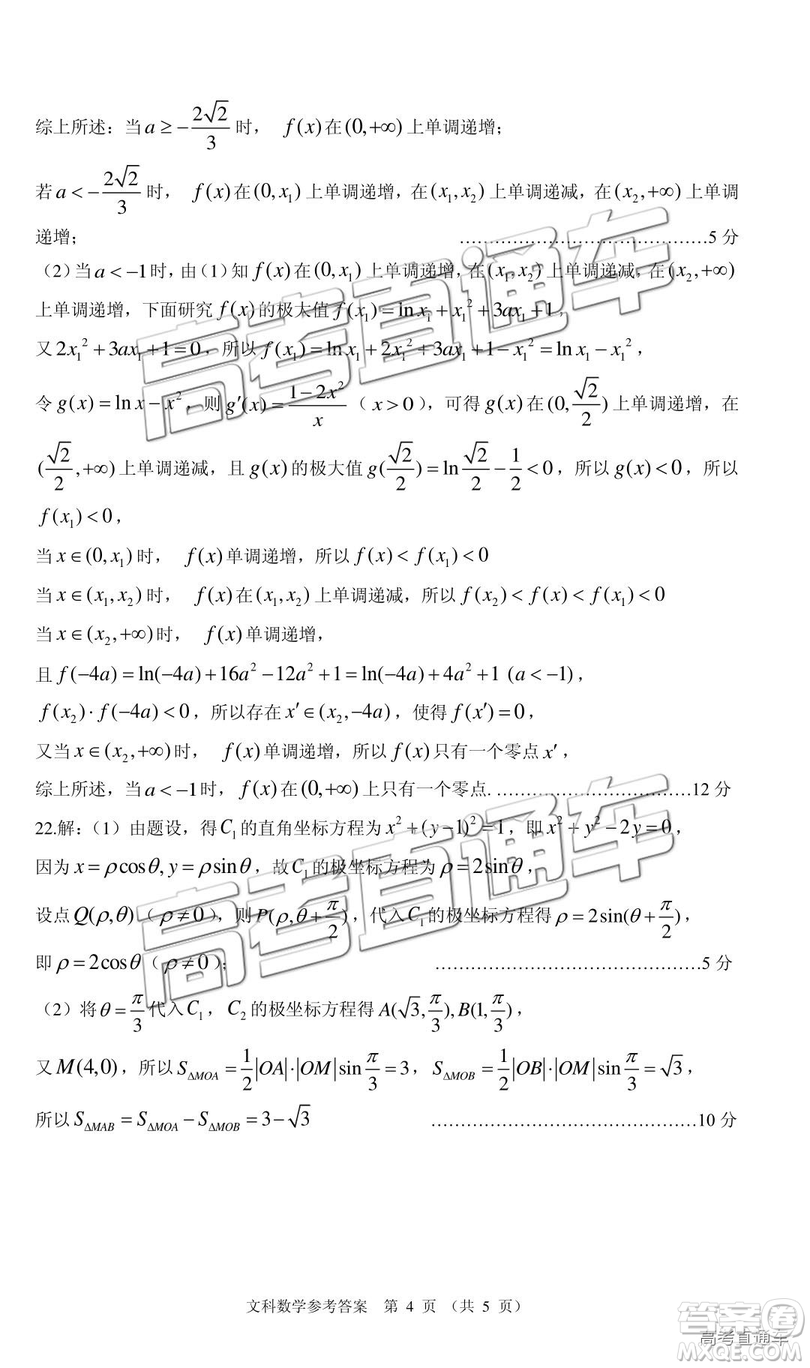 综上所述：当 a ≥ −2√2/3 时， f(x) 在 (0,+∞) 上单调递增；
若 a < −2√2/3 时， f(x) 在 (0, x₁) 上单调递增，在 (x₁, x₂) 上单调递减，在 (x₂,+∞) 上单调
递增； ……………………………………5 分
（2）当 a < −1 时，由（1）知 f(x) 在 (0, x₁) 上单调递增，在 (x₁, x₂) 上单调递减，在 (x₂,+∞)
上单调递增，下面研究 f(x) 的极大值 f(x₁) = ln x₁ + x₁² + 3ax₁ + 1，
又 2x₁² + 3ax₁ + 1 = 0，所以 f(x₁) = ln x₁ + 2x₁² + 3ax₁ + 1 − x₁² = ln x₁ − x₁²，
令 g(x) = ln x − x²，则 g′(x) = (1−2x²)/x （ x > 0 ），可得 g(x) 在 (0, √2/2) 上单调递增，在
(√2/2, +∞) 上单调递减，且 g(x) 的极大值 g(√2/2) = ln √2/2 − 1/2 < 0，所以 g(x) < 0，所以
f(x₁) < 0，
当 x∈(0, x₁) 时， f(x) 单调递增，所以 f(x) < f(x₁) < 0
当 x∈(x₁, x₂) 时， f(x) 在 (x₁, x₂) 上单调递减，所以 f(x₂) < f(x) < f(x₁) < 0
当 x∈(x₂,+∞) 时， f(x) 单调递增，
且 f(−4a) = ln(−4a) + 16a² − 12a² + 1 = ln(−4a) + 4a² + 1 (a < −1)，
f(x₂)·f(−4a) < 0，所以存在 x′∈(x₂,−4a)，使得 f(x′) = 0，
又当 x∈(x₂,+∞) 时， f(x) 单调递增，所以 f(x) 只有一个零点 x′，
综上所述，当 a < −1 时，f(x) 在 (0,+∞) 上只有一个零点. ……………………………12 分
22.解：（1）由题设，得 C₁ 的直角坐标方程为 x² + (y−1)² = 1，即 x² + y² − 2y = 0，
因为 x = ρcosθ, y = ρsinθ，故 C₁ 的极坐标方程为 ρ = 2sinθ，
设点 Q(ρ,θ)（ ρ ≠ 0 ），则 P(ρ,θ+π/2)，代入 C₁ 的极坐标方程得 ρ = 2sin(θ+π/2)，
即 ρ = 2cosθ（ ρ ≠ 0 ）； ………………………………………5 分
（2）将 θ = π/3 代入 C₁，C₂ 的极坐标方程得 A(√3, π/3), B(1, π/3)，
又 M(4,0)，所以 S△MOA = 1/2|OA|·|OM|sin π/3 = 3，S△MOB = 1/2|OB|·|OM|sin π/3 = √3，
所以 S△MAB = S△MOA − S△MOB = 3−√3 ………………………………………10 分
文科数学参考答案 第 4 页 （共 5 页）
高考直通车
高考直通车
答案圈
高考直通车
MXQE.COM